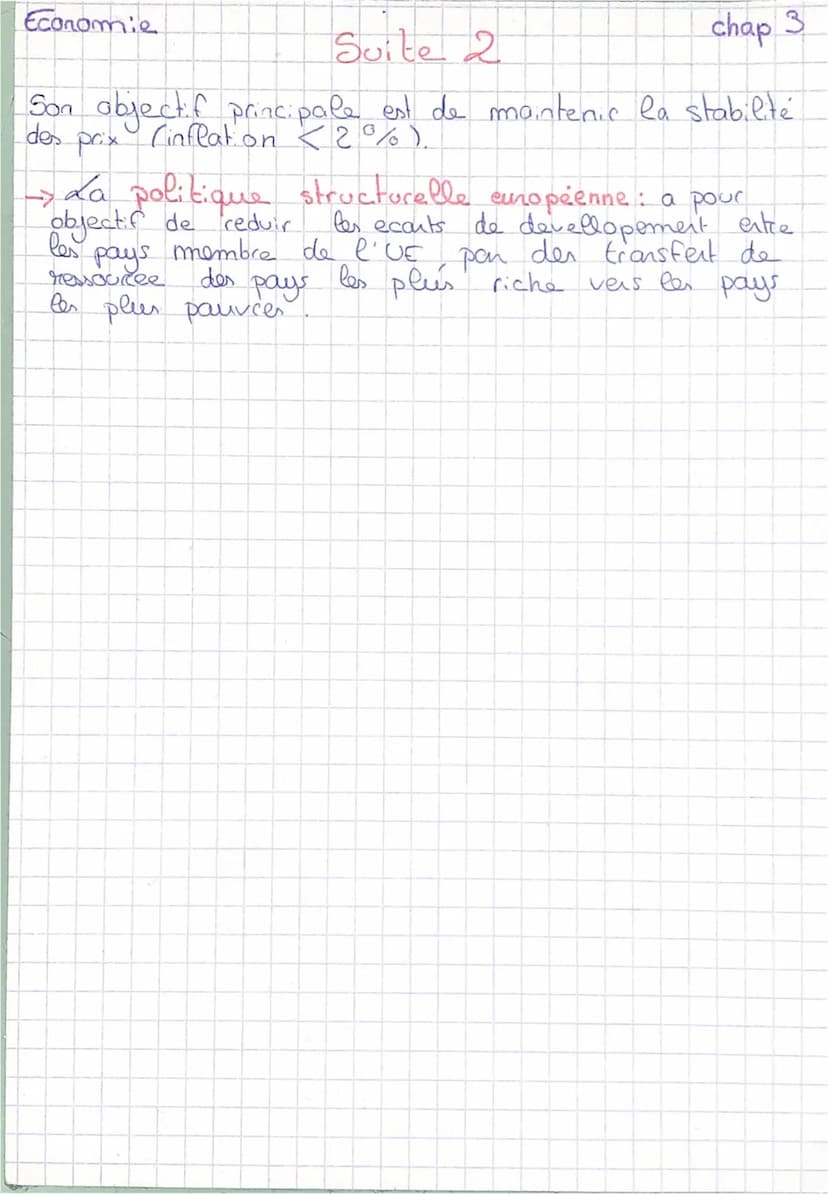 Economie
chap 3
Suite 2
Son objectif principale est de maintenir la stabilité
des prix (inflation < 2%).
→ La politique structurelle européenne : a pour
objectif de reduir les ecarts de devellopement entre
les pays membre de l'UE, par des transfert de
ressource des pays les plus riche vers les pays
les plus pauvres.